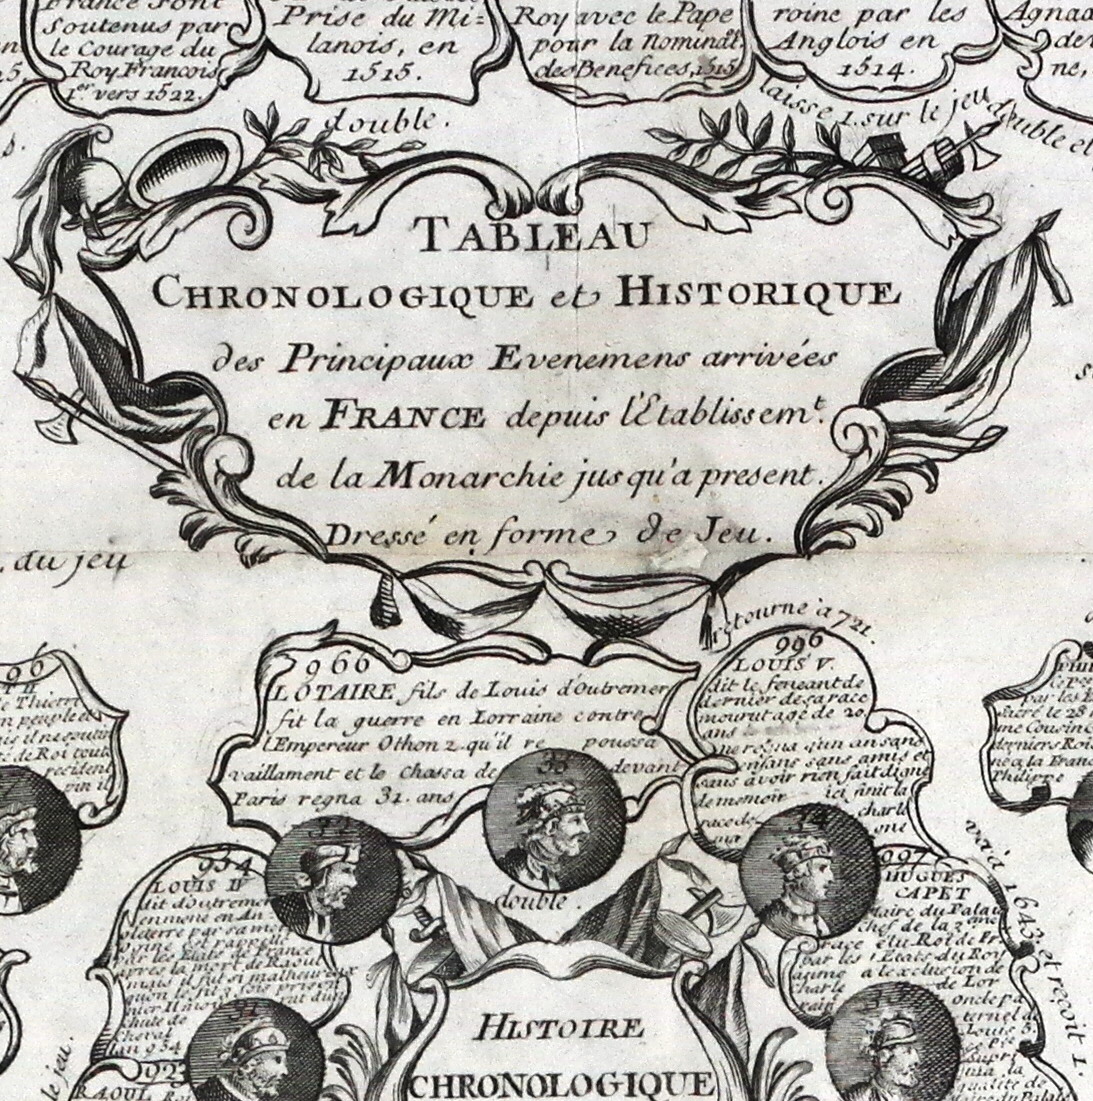 France sont
Soutenus par
le Courage du
Roy Francois
1er vers 1522.
Prise du Mi=
lanois, en
1515.
Roy avec le Pape
pour la Nominat.
des Benefices, 1515
roine par les
Anglois en
1514.
Agnad
ne,
double.
laisse 1. sur le jeu double et
TABLEAU
CHRONOLOGIQUE et HISTORIQUE
des Principaux Evenemens arrivées
en FRANCE depuis l'Etablissemt.
de la Monarchie jusqu'a present.
Dressé en forme de Jeu.
du jeu
retourne à 721.
966
LOTAIRE fils de Louis d'outremer
fit la guerre en Lorraine contre
l'Empereur Othon 2. qu'il re poussa
vaillament et le chassa de devant
Paris regna 31. ans
33
996
LOUIS V.
dit le feneant de
dernier de sa race
mourut age de 20.
ans
ne regna qu'un an sans
enfans sans amis et
sans avoir rien fait digne
de memoir ici finit la
race de charle
34
double.
954
LOUIS IV
dit d'outremer
emmené en An
gleterre par sa mere
par les Etats de France
apres la mort de Raoul
mais il fut si malheureux
lan 954
32
997
HUGUES
CAPET
Maire du Palais
chef de la 3eme
race élu Roi de Fr.
par les Etats du Roy
aume a l'exclusion de
Charle de Lor
raine oncle pa
ternel de
Louis 5.
qualité de
Maire du Palais
35
va à 1643 et reçoit 1.
31
923
RAOUL
le jeu.
Philippe
HISTOIRE
CHRONOLOGIQUE